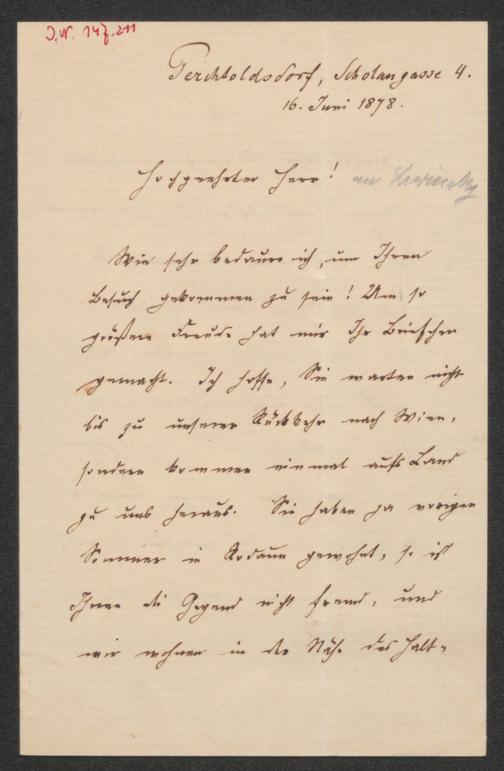 J.N. 147.211
Perchtoldsdorf, Scholangasse 4.
16. Juni 1878.
Hochgeehrter Herr! an Lewinsky
Wie sehr bedaure ich, um Ihren
Besuch gekommen zu sein! Um so
größere Freude hat mir Ihr Briefchen
gemacht. Ich hoffe, Sie warten nicht
bis zu unserer Rückkehr nach Wien,
sondern kommen einmal aufs Land
zu uns heraus. Sie haben ja vorigen
Sommer in Rodaun gewohnt, so ist
Ihnen die Gegend nicht fremd, und
wir wohnen in der Nähe der Halt-